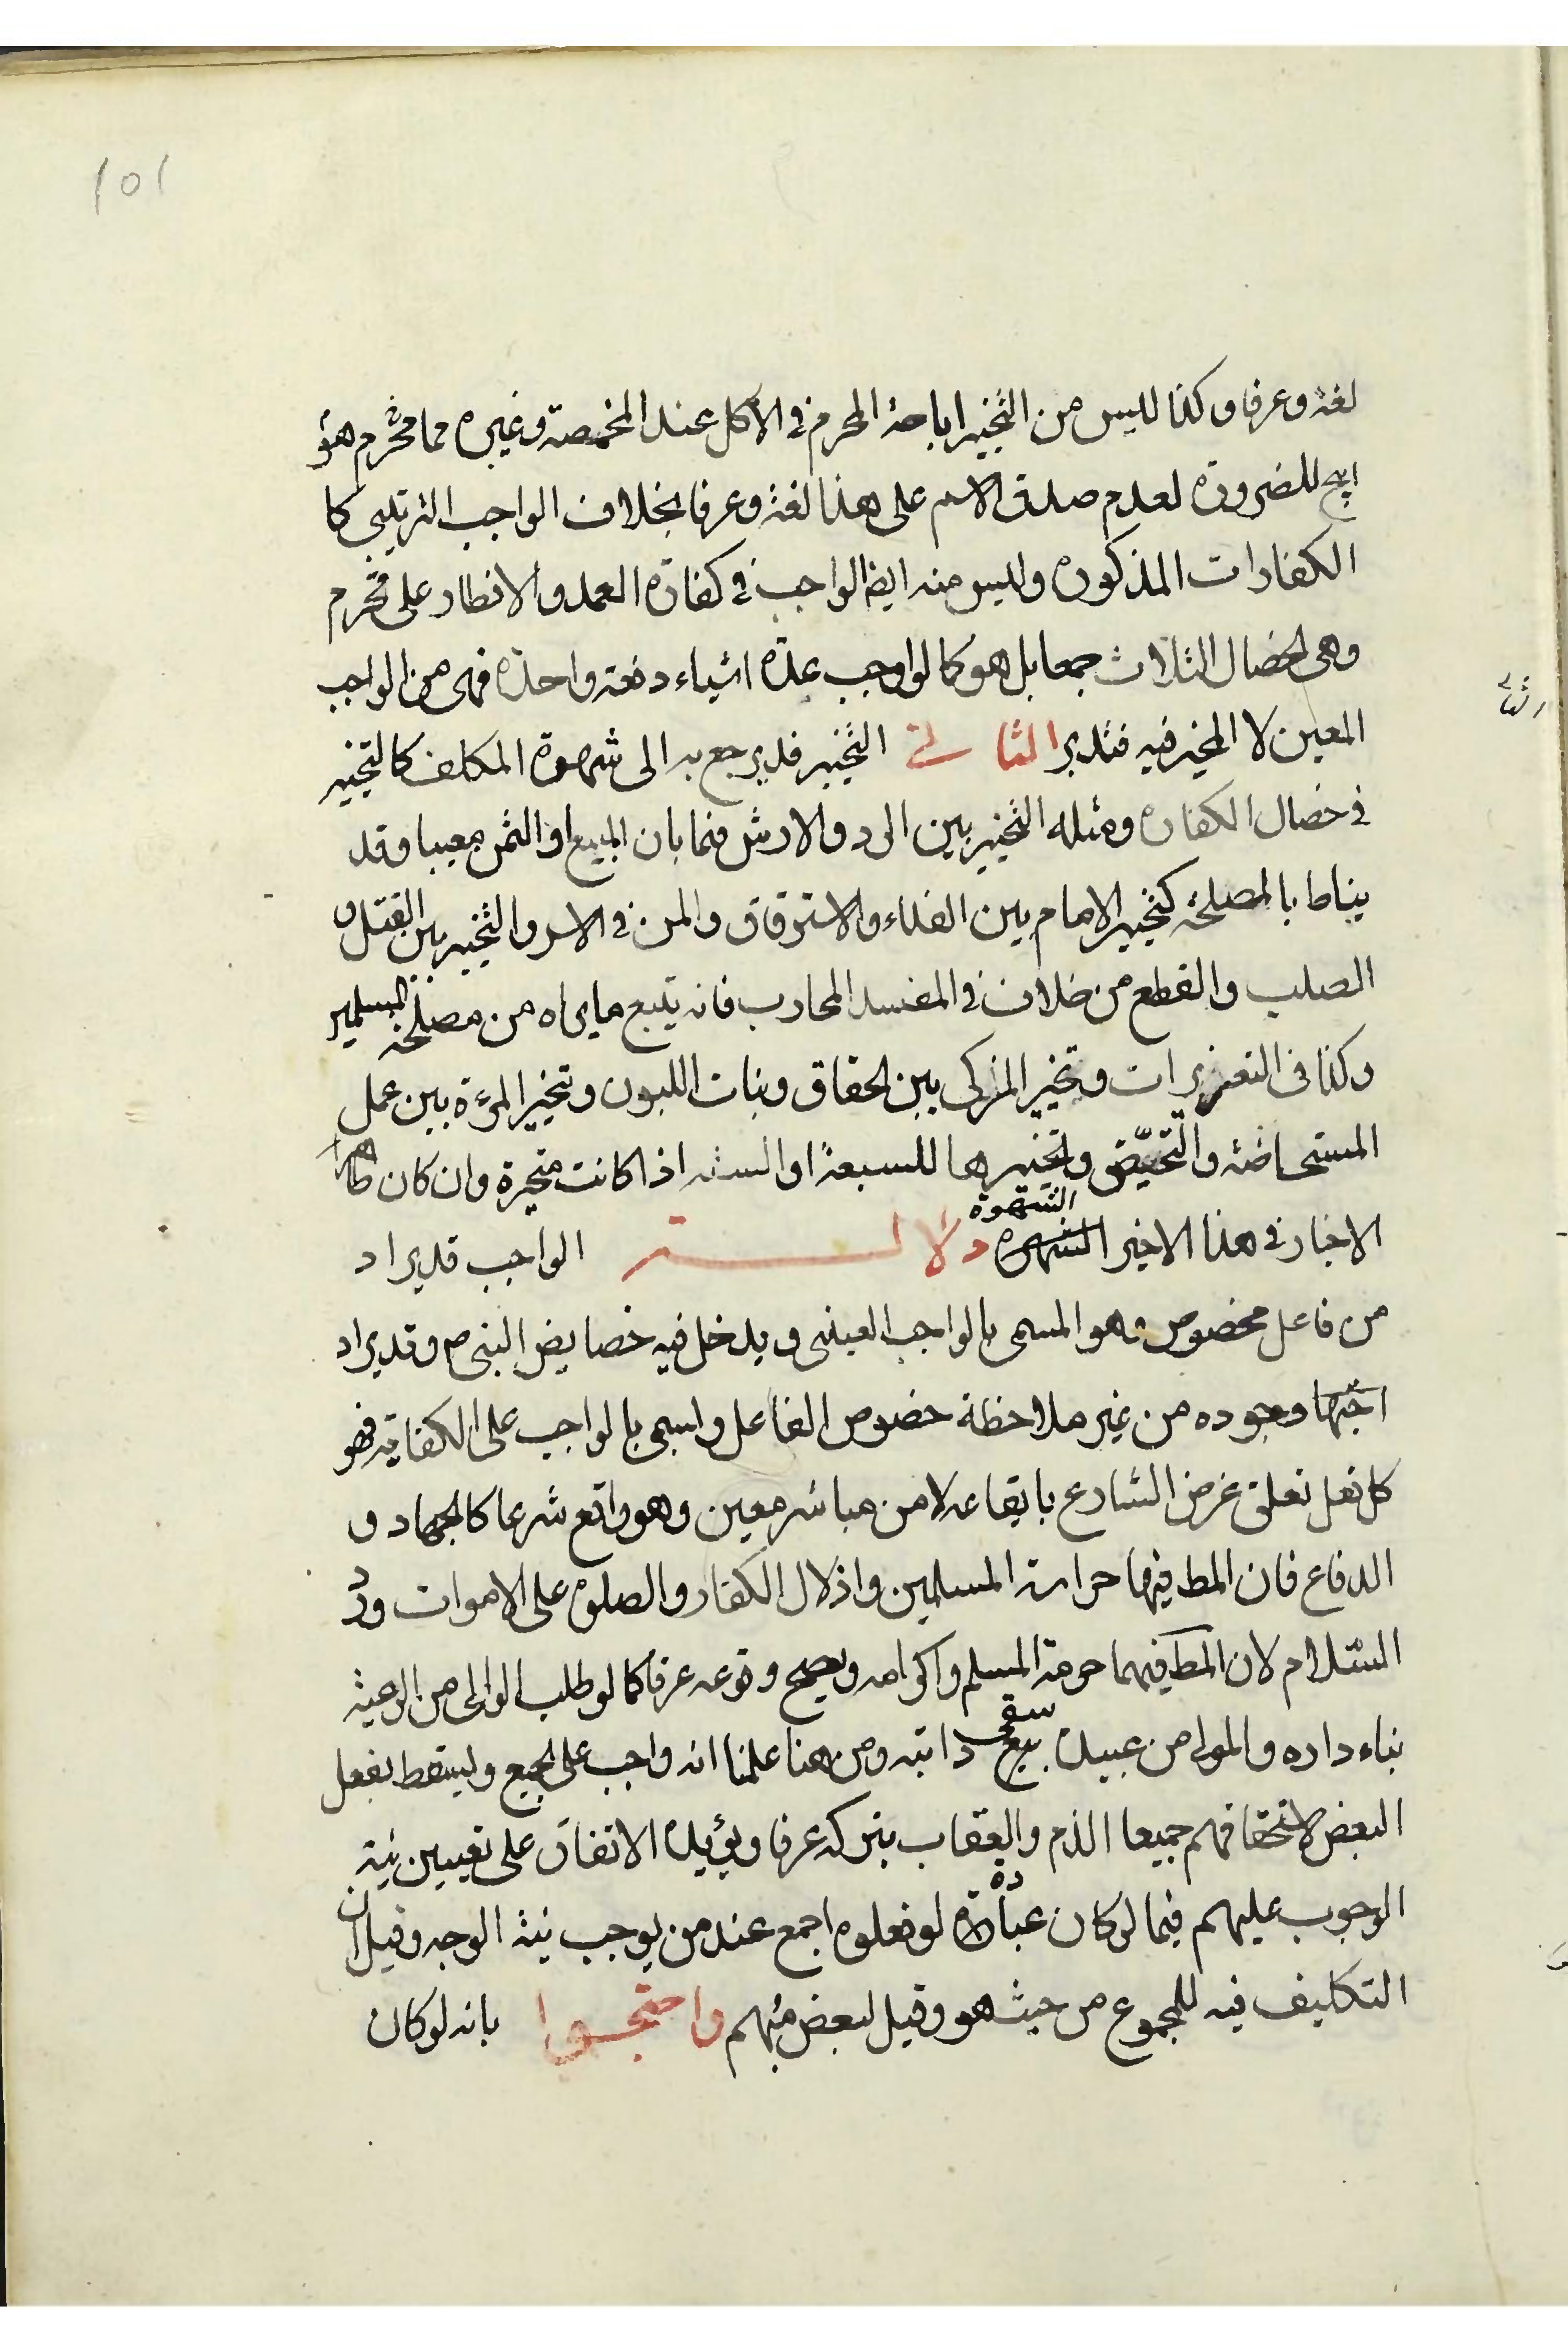 ١٥١
لغة وعرفا وكذا ليس من التخيير اباحة المحرم في الاكل عند المخمصة وغيره مما محرم هو
ابيح للضرورة لعدم صدق الاسم على هذا لغة وعرفا بخلاف الواجب الترتيبي كا
الكفارات المذكورة وليس منه ايضا الواجب في كفارة العمد والافطار على محرم
وهي الخصال الثلاث جمعا بل هو كما لو اوجب عدة اشياء دفعة واحدة فهي من الواجب
المعين لا المخير فيه فتدبر الثانى التخيير قد يرجع به الى شهوة المكلف كالتخيير
في خصال الكفارة ومثله التخيير بين الرد والارش فيما بان المبيع او الثمن معيبا وقد
يناط بالمصلحة كتخيير الامام بين الفداء والاسترقاق والمن في الاسر والتخيير بين القتل و
الصلب والقطع من خلاف في المفسد المحارب فانه يتبع ما يراه من مصلحة المسلمين
وكذا في التعزيرات وتخيير المزكى بين الحقاق وبنات اللبون وتخيير المرءة بين عمل
المستحاضة والتحيّض وتخييرها للسبعة او الستة اذا كانت متحيرة وان كان ظاهر
الاخبار في هذا الاخير الشهرة الشهوة دلالة الواجب قد يراد
من فاعل مخصوص وهو المسمى بالواجب العينى ويدخل فيه خصايص النبي ص وقد يراد
وجوده من غير ملاحظة خصوص الفاعل واسمى بالواجب على الكفاية فهو
كل فعل تعلق غرض الشارع بايقاعه لا من مباشر معين وهو واقع شرعا كالجهاد و
الدفاع فان المط فيهما حراسة المسلمين واذلال الكفار والصلوة على الاموات ورد
السّلام لان المط فيهما حرمة المسلم واكرامه ويصح وقوعه عرفا كما لو طلب الوالى من الرعية
بناء داره والمولى من عبيده بيع سقى دابته ومن هنا علمنا انه واجب على الجميع ويسقط بفعل
البعض لاستحقاقهم جميعا الذم والعقاب بتركه عرفا ويؤيده الاتفاق على تعيين نية
الوجوب عليهم فيما لو كان عبادة لو فعلوه اجمع عند من يوجب نية الوجه وقيل ان
التكليف فيه للمجموع من حيث هو وقيل لبعض منهم واحتجوا بانه لو كان